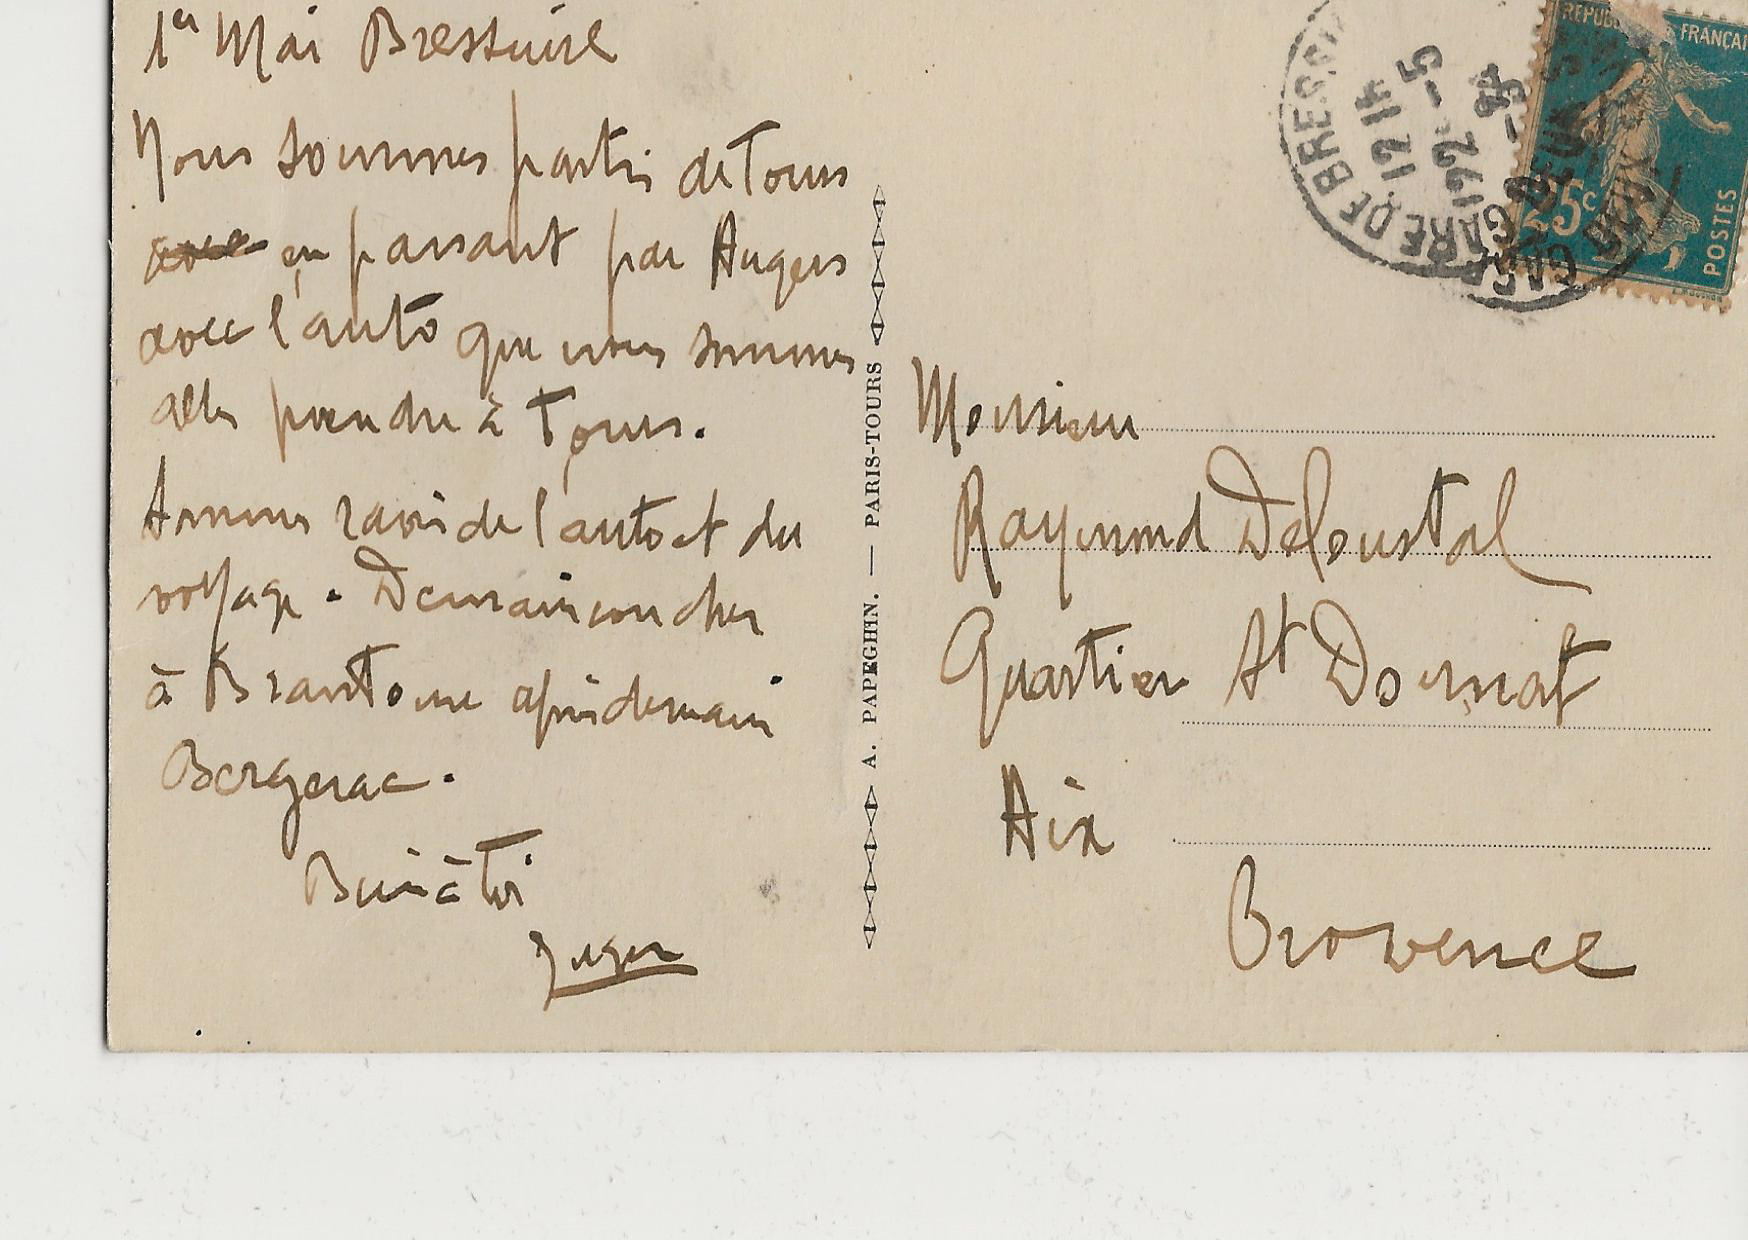 1er Mai Bressuire
Nous sommes partis de Tours
avec en passant par Angers
avec l'auto que nous sommes
allés prendre à Tours.
Sommes ravis de l'auto et du
voyage. Demain coucher
à Brantome après demain
Bergerac.
Bien à toi
A. PAPEGHIN. — PARIS-TOURS
GARE DE BRESSUIRE
17 14
1 -5
192
REPUBLIQUE FRANÇAISE
25c
POSTES
Monsieur
Raymond Deloustal
Quartier St Donnat
Aix
Provence